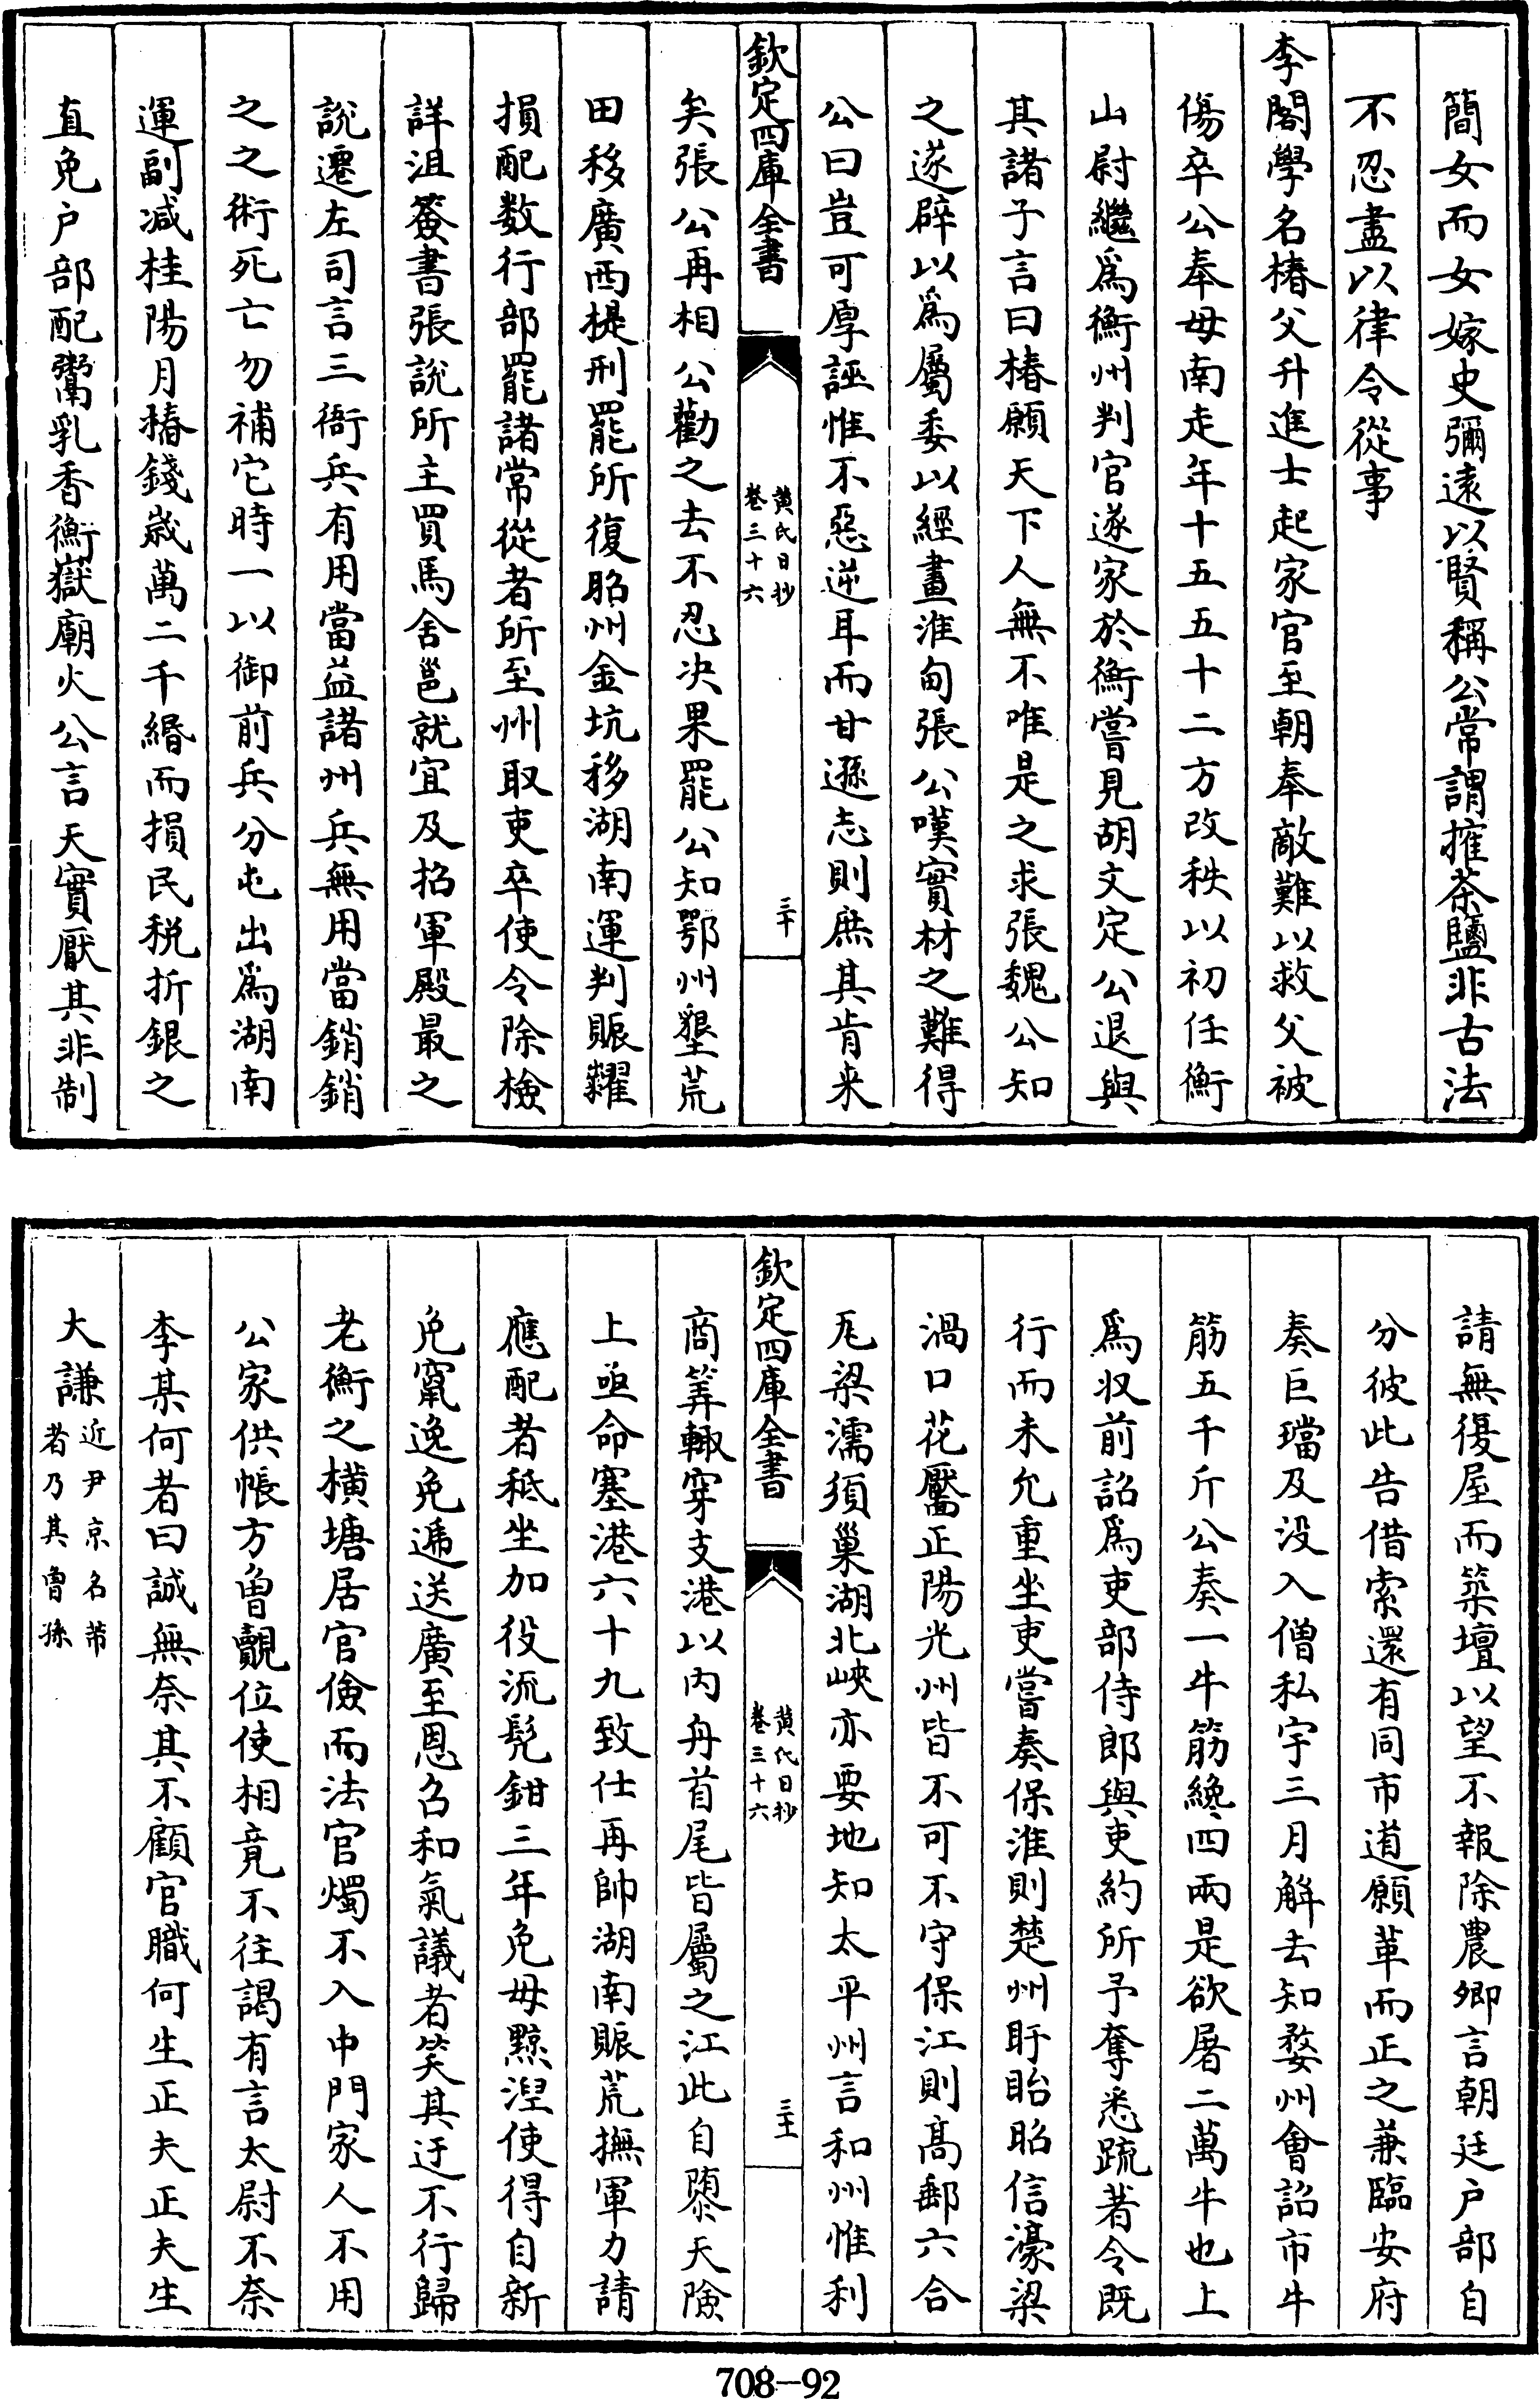 簡女而女嫁史彌遠以賢稱公常謂搉茶鹽非古法
不忍盡以律令從事
李閣學名椿父升進士起家官至朝奉敵難以救父被
傷卒公奉母南走年十五五十二方改秩以初任衡
山尉繼爲衡州判官遂家於衡嘗見胡文定公退與
其諸子言曰椿願天下人無不唯是之求張魏公知
之遂辟以爲屬委以經畫淮甸張公嘆實材之難得
公曰豈可厚誣惟不惡逆耳而甘遜志則庶其肯来
欽定四庫全書
黄氏日抄
卷三十六
三十
矣張公再相公勸之去不忍决果罷公知鄂州墾荒
田移廣西提刑罷所復昭州金坑移湖南運判賑糶
損配数行部罷諸常從者所至州取吏卒使令除檢
詳沮簽書張説所主買馬舍邕就宜及招軍殿最之
説遷左司言三衙兵有用當益諸州兵無用當銷銷
之之術死亡勿補它時一以御前兵分屯出爲湖南
運副减桂陽月椿錢歳萬二千緡而損民税折銀之
直免户部配鬻乳香衡嶽廟火公言天實厭其非制
請無復屋而築壇以望不報除農卿言朝廷户部自
分彼此告借索還有同市道願革而正之兼臨安府
奏巨璫及没入僧私宇三月解去知婺州會詔市牛
筋五千斤公奏一牛筋纔四兩是欲屠二萬牛也上
爲収前詔爲吏部侍郎與吏約所予奪悉疏著令既
行而未允重坐吏嘗奏保淮則楚州盱眙昭信濠梁
渦口花靨正陽光州皆不可不守保江則髙郵六合
瓦梁濡須巢湖北峽亦要地知太平州言和州惟利
欽定四庫全書
黄氏日抄
卷三十六
三十一
商筭輙穿支港以内舟首尾皆屬之江此自隳天險
上亟命塞港六十九致仕再帥湖南賑荒撫軍力請
應配者秪坐加役流髠鉗三年免毋黥湼使得自新
免竄逸免逓送廣至恩召和氣議者笑其迂不行歸
老衡之横塘居官儉而法官燭不入中門家人不用
公家供帳方曾覿位使相竟不往謁有言太尉不奈
李某何者曰誠無奈其不顧官職何生正夫正夫生
大謙近尹京名芾
者乃其曾孫
708-92